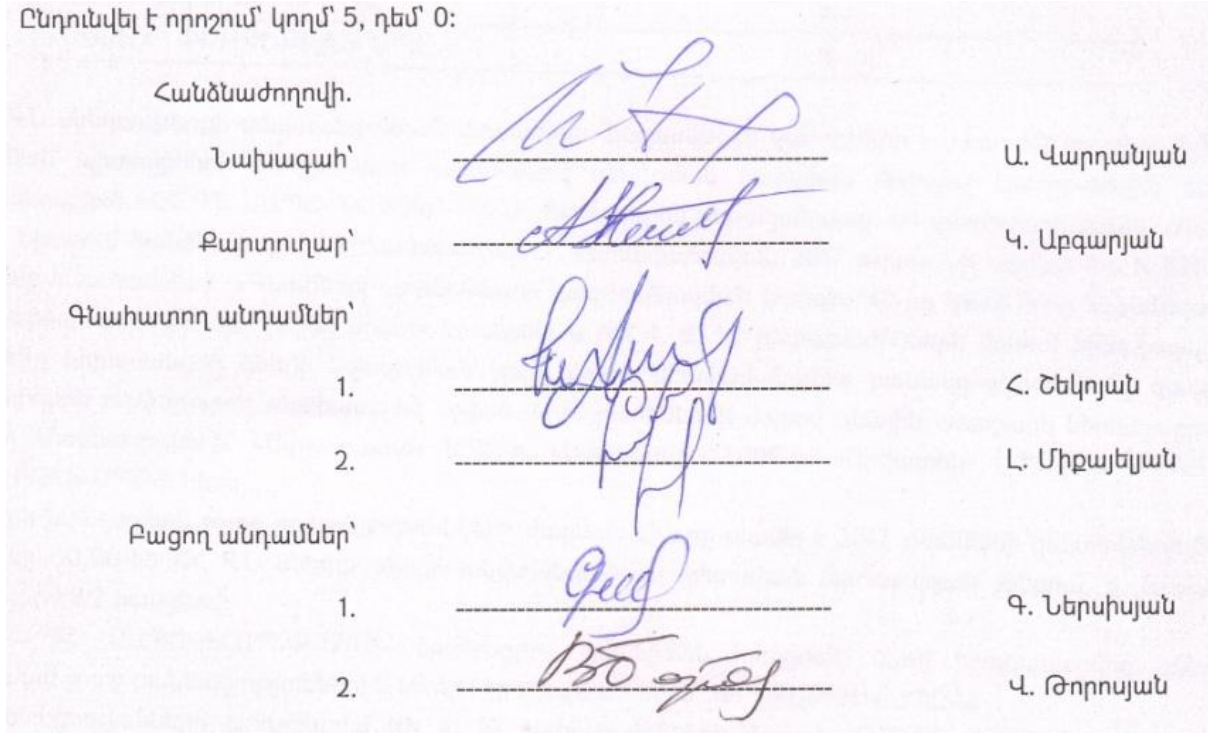 Ընդունվել է որոշում՝ կողմ՝ 5, դեմ՝ 0:
Հանձնաժողովի.
Նախագահ՝ Ա. Վարդանյան
Քարտուղար՝ Կ. Աբգարյան
Գնահատող անդամներ՝
1. Հ. Շեկոյան
2. Լ. Միքայելյան
Բացող անդամներ՝
1. Գ. Ներսիսյան
2. Վ. Թորոսյան